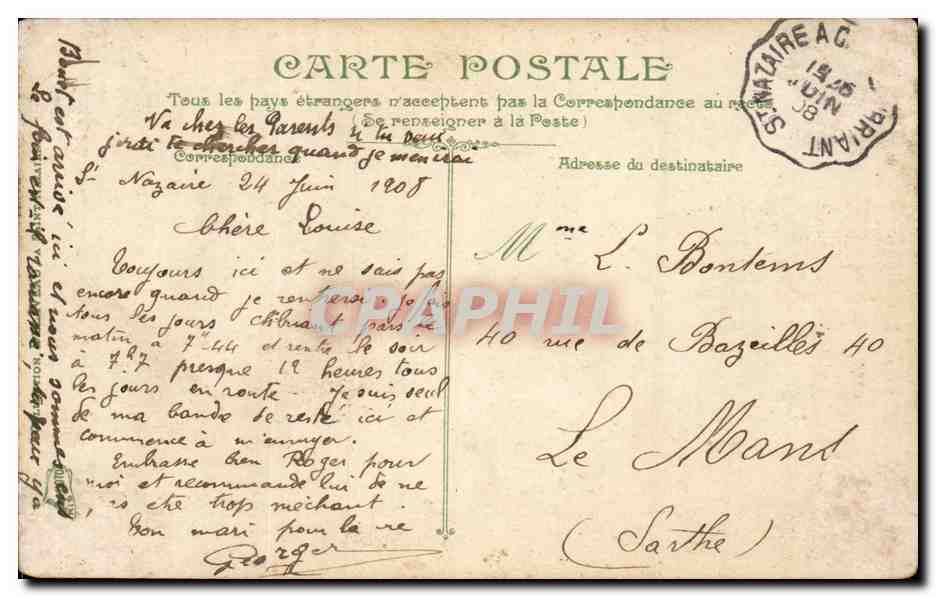 CARTE POSTALE
Tous les pays étrangers n'acceptent pas la Correspondance au recto
(Se renseigner à la Poste)
Va chez les Parents si tu veux
j'irai te chercher quand je
Correspondance
Adresse du destinataire
St Nazaire 24 Juin 1908
Chère Louise
Toujours ici et ne sais pas
encore quand je rentrerai. je
tous les jours pars le
matin à 7h44 et rentre le soir
à 7h7 presque 12 heures tous
les jours en route. Je suis seul
de ma bande de resté ici et
commence à m'ennuyer.
Embrasse bien Roger pour
moi et recommande lui de ne
pas être trop méchant.
Ton mari pour la vie
Georges
Mme L. Bontems
40 rue de Bazeilles 40
Le Mans
(Sarthe)
est arrivé ici et nous sommes
ST NAZAIRE A C
RIANT
JUIN
08
CPAPHIL